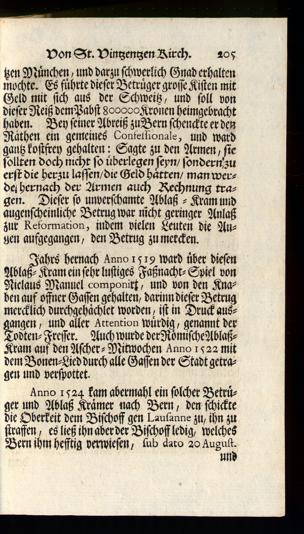 Von St. Vintzentzen Kirch. 205
tzen München, und darzu schwerlich Gnad erhalten
mochte. Es führte dieser Betrüger grosse Kisten mit
Geld mit sich aus der Schweitz, und soll von
dieser Reiß dem Pabst 800000 Kronen heimgebracht
haben. Bey seiner Abreiß zu Bern schenckte er den
Räthen ein gemeines Confessionale, und ward
gantz kostfrey gehalten: Sagte zu den Armen, sie
sollten doch nicht so überlegen seyn/ sondern zu
erst die herzu lassen/ die Geld hätten/ man wer-
de hernach der Armen auch Rechnung tra-
gen. Dieser so unverschamte Ablaß-Kram und
augenscheinliche Betrug war nicht geringer Anlaß
zur Reformation, indem vielen Leuten die Au-
gen aufgegangen, den Betrug zu mercken.
Jahrs hernach Anno 1519 ward über diesen
Ablaß-Kram ein sehr lustiges Faßnacht-Spiel von
Niclaus Manuel componirt, und von den Kna-
ben auf offner Gassen gehalten, darinn dieser Betrug
mercklich durchgehächlet worden, ist in Druck aus-
gangen, und aller Attention würdig, genannt der
Todten-Fresser. Auch wurde der Römische Ablaß-
Kram auf den Ascher-Mitwochen Anno 1522 mit
dem Bonen-Lied durch alle Gassen der Stadt getra-
gen und verspottet.
Anno 1524 kam abermahl ein solcher Betrü-
ger und Ablaß Krämer nach Bern, den schickte
die Oberkeit dem Bischoff gen Lausanne zu, ihn zu
straffen, es ließ ihn aber der Bischoff ledig, welches
Bern ihm hefftig verwiesen, sub dato 20 August.
und